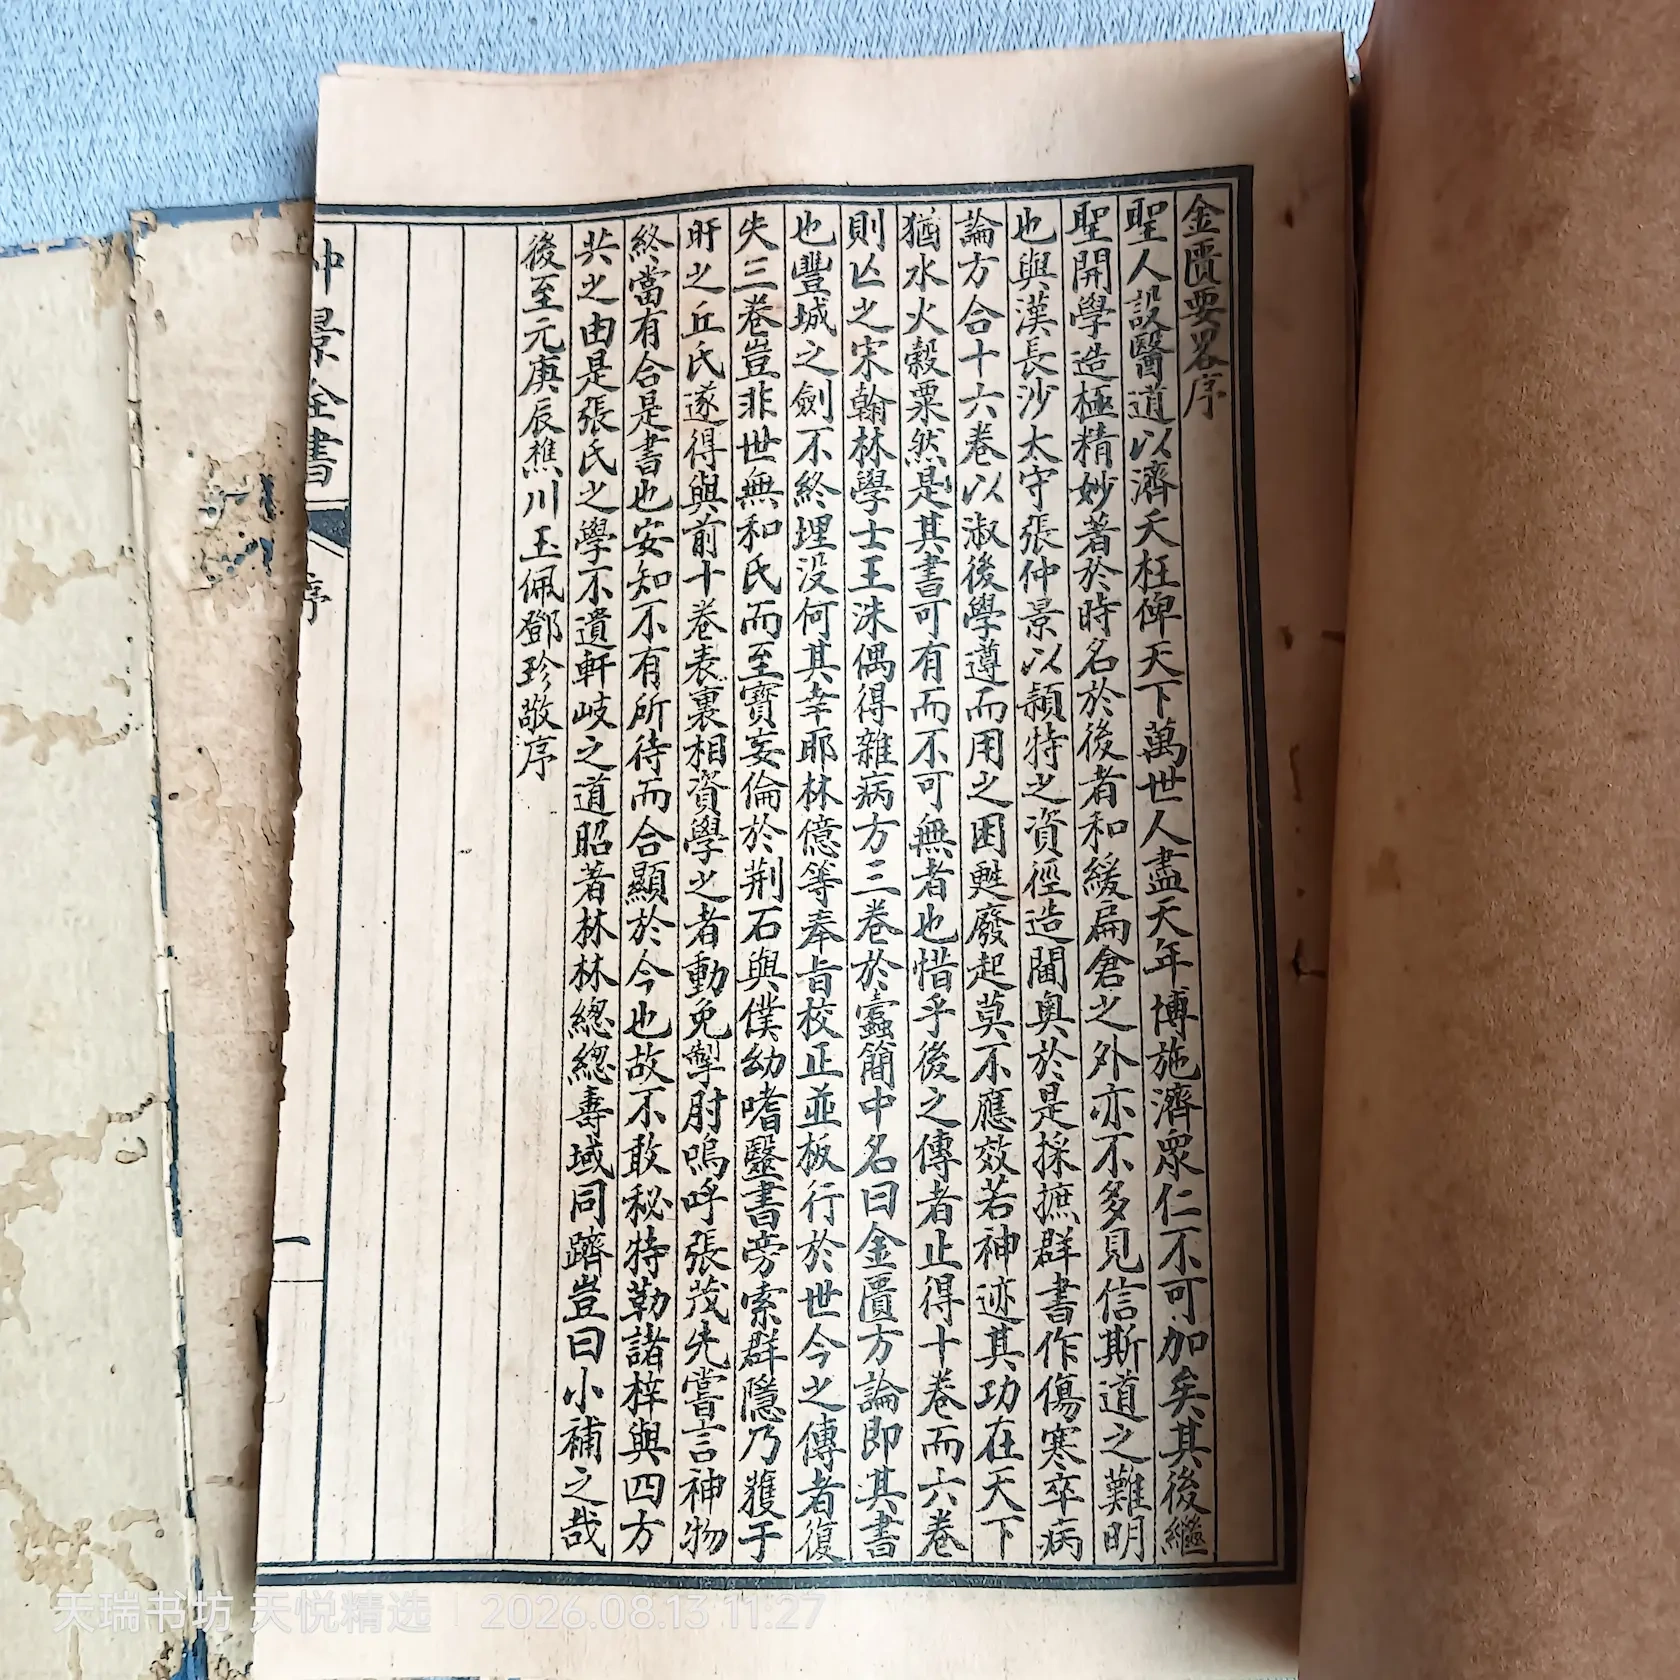 金匱要畧序
聖人設醫道以濟夭枉俾天下萬世人盡天年博施濟眾仁不可加矣其後繼
聖開學造極精妙著於時名於後者和緩扁倉之外亦不多見信斯道之難明
也與漢長沙太守張仲景以穎特之資徑造閫奧於是採摭群書作傷寒卒病
論方合十六卷以淑後學遵而用之困甦廢起莫不應效若神迹其功在天下
猶水火穀粟然是其書可有而不可無者也惜乎後之傳者止得十卷而六卷
則亾之宋翰林學士王洙偶得雜病方三卷於蠹簡中名曰金匱方論即其書
也豐城之劍不終埋没何其幸耶林億等奉旨校正並板行於世今之傳者復
失三卷豈非世無和氏而至寶妄倫於荆石與僕幼嗜醫書旁索群隱乃獲于
盱之丘氏遂得與前十卷表裏相資學之者動免掣肘嗚呼張茂先嘗言神物
終當有合是書也安知不有所待而合顯於今也故不敢秘特勒諸梓與四方
共之由是張氏之學不遺軒岐之道昭著林林總總壽域同躋豈曰小補之哉
後至元庚辰樵川玉佩鄧珍敬序
仲景全書
序
一
天瑞书坊 天悦精选 2026.08.13 11:27